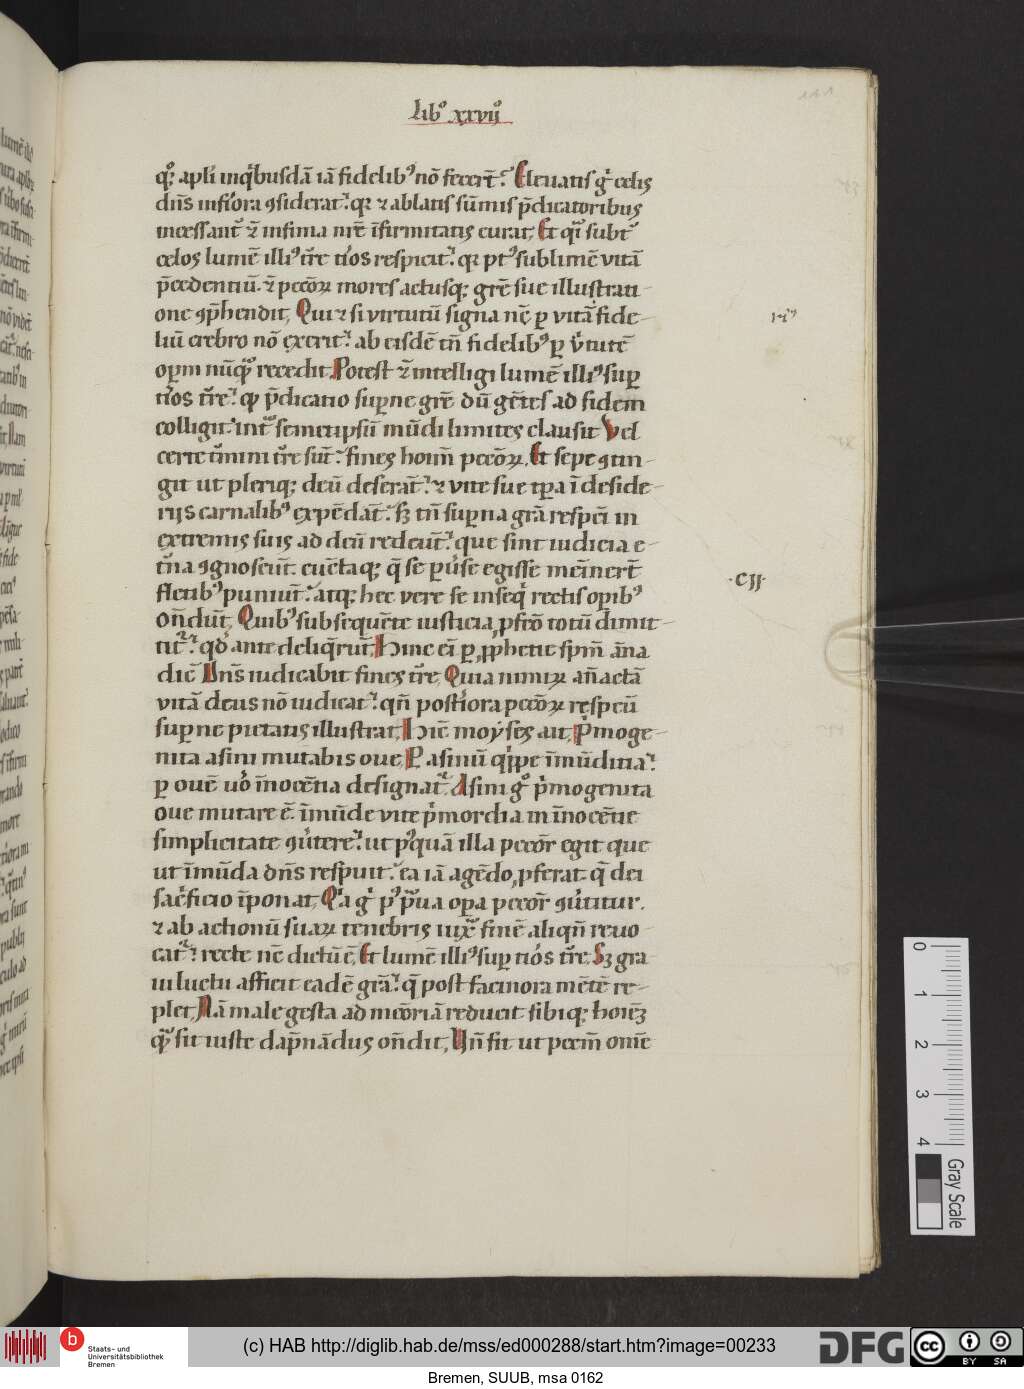 libꝰ xxvijꝰ
qꝫ apl'i inq'busdā iā fidelibꝰ nō feceꝛt̄. Eleuatis g' celis
dn̄s inferiora ꝯsiderat. qꝛ ⁊ ablatis sūmis p̄dicatoribus
incessant' ⁊ infima nr̄e īfirmitatis curat, Et q'i subt'
celos lumē illiꝰ t're t'ios respicit. qꝛ ptꝰ sublimē vitā
p̄cedentiū. ⁊ pccōꝝ mores actusqꝫ grē sue illustrati-
one ꝯp̄hendit, Qui ⁊ si virtutū signa nc̄ ꝑ vitā fide-
liū crebro nō exerit. ab eisdē tn̄ fidelibꝰ ꝑ v'tutē
oꝑm nūq' recedit, Potest ⁊ intelligi lumē illiꝰ suꝑ
t'ios t're. qꝫ p̄dicatio suꝑne grē dū gētes ad fidem
colligit. int' semetipsū mūdi limites clausit Vel
certe t'mini t're sūt. fines hoīm pccōꝝ. Et sepe ꝯtin-
git ut pleriqꝫ deū deserāt. ⁊ vite sue tꝑa ī deside-
rijs carnalibꝰ expēdāt. sꝫ tn̄ suꝑna grā respc̄i in
extremis suis ad deū redeūt. que sint iudicia e-
t'na ꝯgnoscūt. cūctaqꝫ q̄ se ꝑu'se egisse meīnert̄
fletibꝰ puniūt. atqꝫ hec vere se inseq' rectis oꝑibꝰ
on̄dūt, Quibꝰ subsequēte iusticia ꝓfcō totū dimit-
tit. qd' ante deliq'rūt, Hinc eī ꝑ ꝓphetie spm̄ āna
dic̄ Dn̄s iudicabit fines t're, Quia nimiꝝ an̄actā
vitā deus nō iudicat. qn̄ post'iora pccōꝝ respcū
suꝑne pietatis illustrat, Hīc moyses ait, P'moge-
nita asini mutabis oue, P asinū q'ppe īmūditia.
ꝑ ouē uō īnocētia designat'. Asini gꝰ p'mogenita
oue mutare ē. īmūde vite p'mordia in īnocētie
simplicitate ꝯu'tere. ut pꝰquā illa pccōr egit que
ut īmūda dn̄s respuit. ea iā agēdo ꝓferat q̄ dei
sac'ficio īponat, Q'a g' pꝰ p'ua oꝑa pccōr ꝯu'titur.
⁊ ab actionū suaꝝ tenebris iux' finē aliqn̄ reuo-
cat'. recte nc̄ dictū ē, Et lumē illiꝰ suꝑ t'ios t're, Sꝫ gra-
ui luctu afficit eadē grā. q̄ post facinora mētē re-
plet, Nā male gesta ad mēoriā reducit sibiqꝫ hoīeꝫ
q' sit iuste dāpnādus on̄dit, Vn̄ fit ut pccm̄ om̄e
·CII·
0
1
2
3
4
Gray Scale
b
Staats- und
Universitätsbibliothek
Bremen
(c) HAB http://diglib.hab.de/mss/ed000288/start.htm?image=00233
DFG
cc
BY SA
Bremen, SUUB, msa 0162